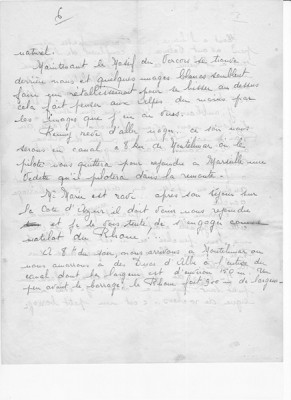 6
naturel.
Maintenant le Massif du Vercors se trouve
derrière nous et quelques nuages blancs semblent
faire un rétablissement pour se hisser au dessus
cela fait penser aux Alpes du moins par
les images que j'en ai vues.
Rémy rêve d'aller ce soir nous
serons en canal à 8 km de Montélimar où le
pilote nous quittera pour reprendre à Marseille une
vedette qu'il pilotera dans la remonte.
Mr Marie est ravi après son séjour sur
la Côte d'Azur il doit venir nous reprendre
et je le sens tenté, de s'engager comme
matelot du Rhône.
A 8h du soir, nous arrivons à Montélimar, où
nous amarrons à des Ducs d'Albe à l'entrée du
canal dont la largeur est d'environ 150 m. Un
peu avant le barrage, le Rhône fait 300 m de largeur.